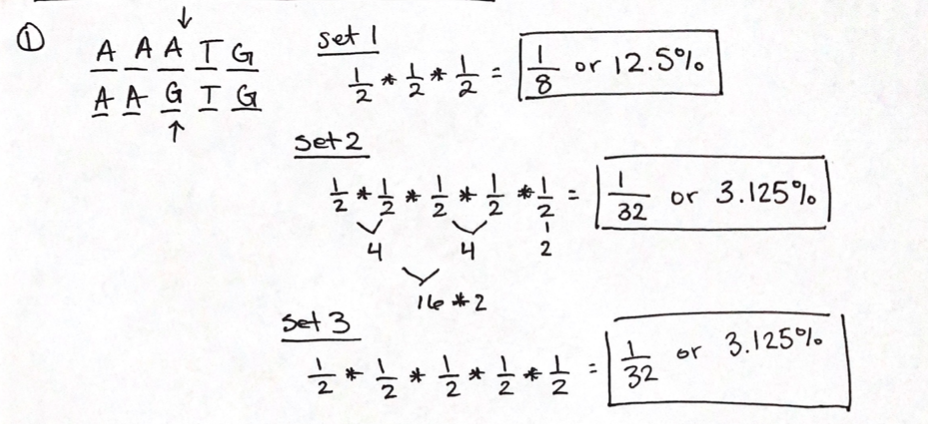 ①
A A A T G
A A G T G
set 1
1/2 * 1/2 * 1/2 = 1/8 or 12.5%
set 2
1/2 * 1/2 * 1/2 * 1/2 * 1/2 = 1/32 or 3.125%
4 4 2
16 * 2
set 3
1/2 * 1/2 * 1/2 * 1/2 * 1/2 = 1/32 or 3.125%